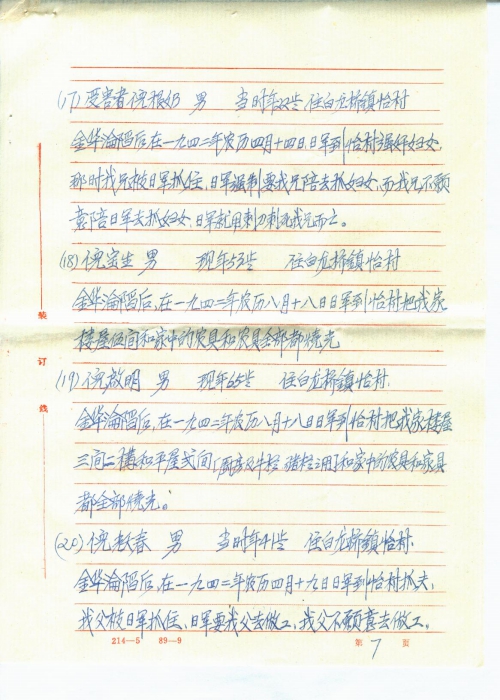 (17) 受害者倪根奶 男 当时年22岁 住白龙桥镇怡村
金华沦陷后,在一九四二年农历四月十四日,日军到怡村强奸妇女,
那时我兄被日军抓住,日军强制要我兄陪去抓妇女,而我兄不愿
意陪日军去抓妇女,日军就用刺刀刺死我兄而亡。
(18) 倪宝生 男 现年53岁 住白龙桥镇怡村
金华沦陷后,在一九四二年农历八月十八日日军到怡村把我家
楼屋伍间和家中的农具和农具全部都烧光
(19) 倪啟明 男 现年65岁 住白龙桥镇怡村.
金华沦陷后,在一九四二年农历八月十八日日军到怡村把我家楼屋
三间二橫和平屋弍间[厨房及牛栏 猪栏之用]和家中的农具和家具
都全部烧光。
(20) 倪老春 男 当时年41岁 住白龙桥镇怡村.
金华沦陷后,在一九四二年农历四月十九日日军到怡村抓夫,
我父被日军抓住,日军要我父去做工,我父不愿意去做工。
装
订
线
214—5 89—9
第 7 页